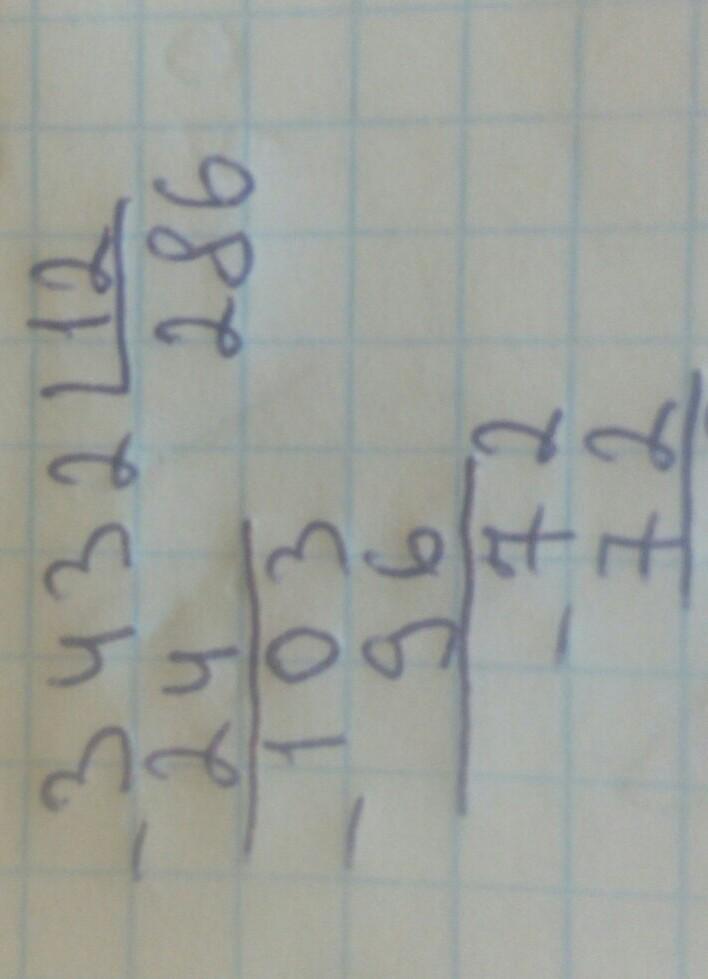 3432 12
- 24 286
103
- 96
- 72
72